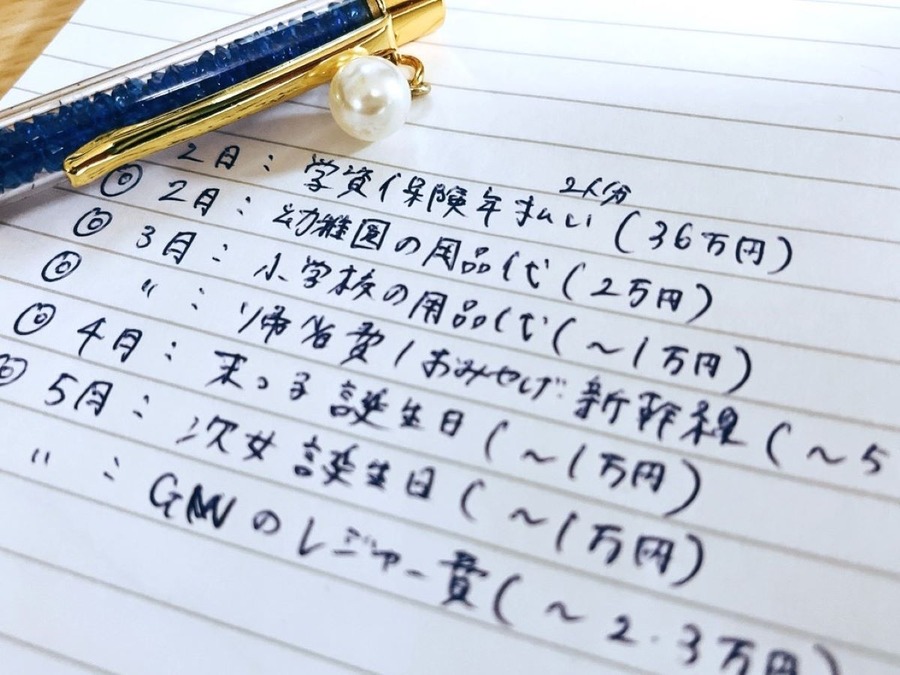 2人分
2月：学資保険年払い（36万円）
◎ 2月：幼稚園の用品代（2万円）
◎ 3月：小学校の用品代（～1万円）
◎ 〃：帰省費/おみやげ 新幹線（～5
◎ 4月：末っ子誕生日（～1万円）
◎ 5月：次女誕生日（～1万円）
〃：GWのレジャー費（～2.3万円）